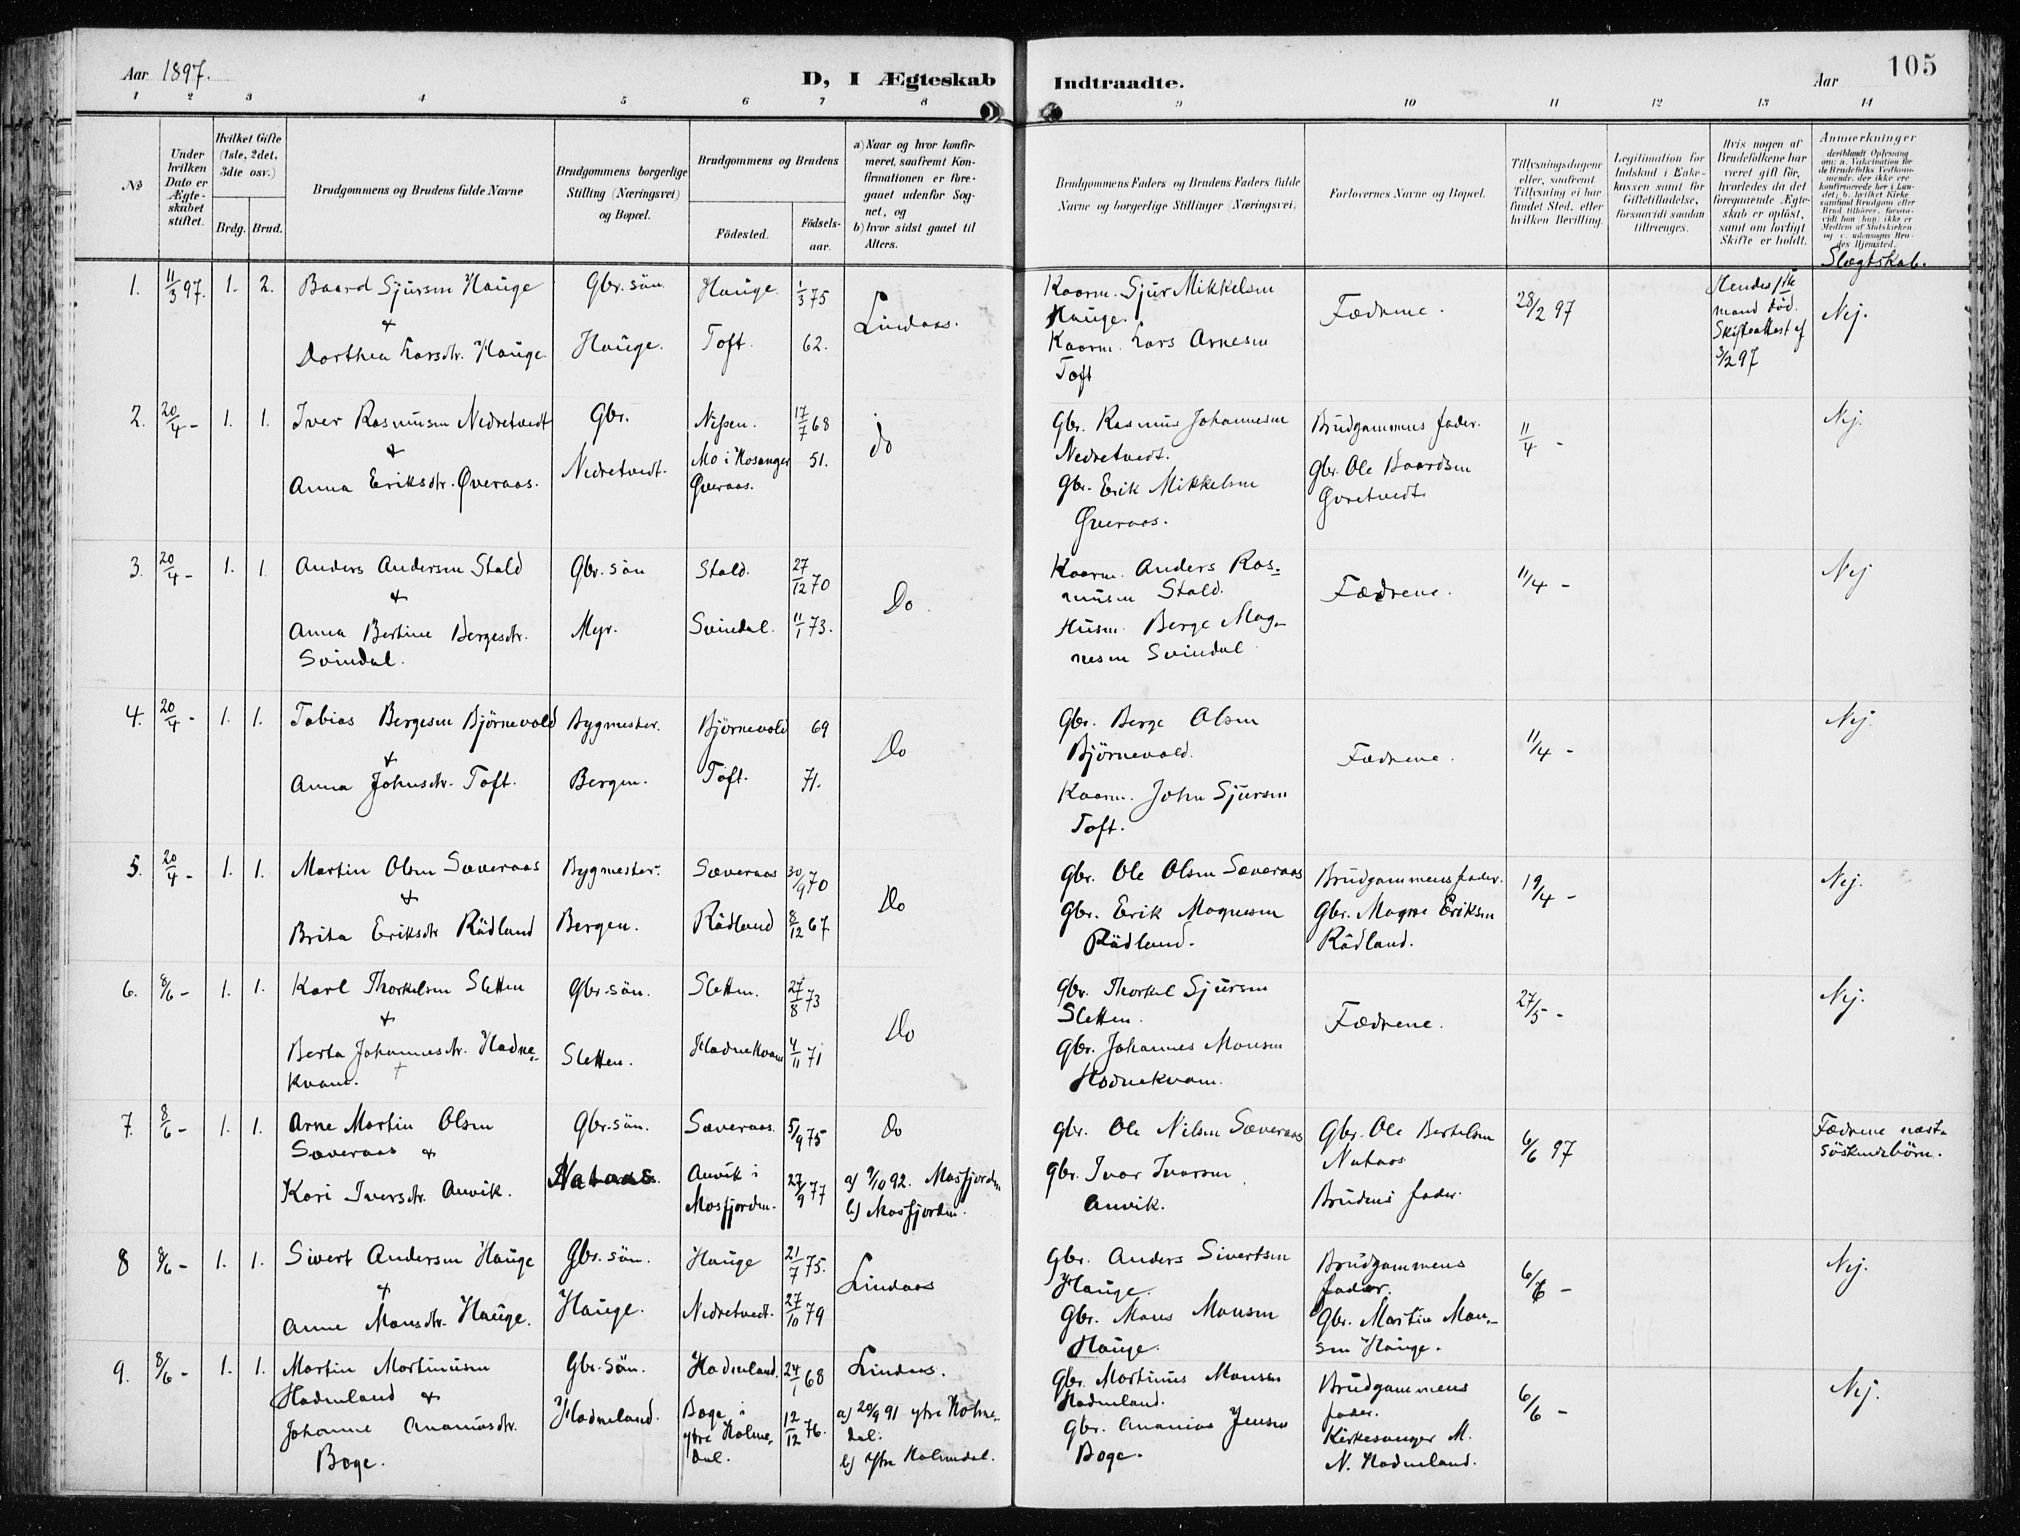 Aar 1897.
D, I Ægteskab Indtraadte.
Aar 105
1 2 3 4 5 6 7 8 9 10 11 12 13 14
№
Under hvilken Dato er Ægteskabet stiftet.
Hvilket Gifte (1ste, 2det, 3die osv.)
Brdg. Brud.
Brudgommens og Brudens fulde Navne
Brudgommens borgerlige Stilling (Næringsvei) og Bopæl.
Brudgommens og Brudens
Fødested. Fødselsaar.
a) Naar og hvor konfirmeret, saafremt Konfirmationen er foregaaet udenfor Sognet, og
b) hvor sidst gaaet til Alters.
Brudgommens Faders og Brudens Faders fulde Navne og borgerlige Stillinger (Næringsvei)
Forlovernes Navne og Bopæl.
Tillysningsdagene eller, saafremt Tillysning ei har fundet Sted, efter hvilken Bevilling.
Legitimation for Indskud i Enkekassen samt for Giftetilladelse, forsaavidt saadan tiltrænges.
Hvis nogen af Brudefolkene har været gift før, hvorledes da det foregaaende Ægteskab er opløst, samt om lovligt Skifte er holdt.
Anmærkninger
Slægtskab.
1. 11/3 97. 1. 2. Baard Sjursen Hauge Gbr. sön. Hauge. 1/3 75 Lindaas. Kaarm. Sjur Mikkelsen Fædrene. 28/2 97 Hendes 1ste Nej.
&
Hauge. mand död.
Dorthea Larsdtr. Hauge Hauge. Toft. 62. Kaarm. Lars Arnesen Skifteattest af
Toft 3/2 97
2. 20/4 - 1. 1. Iver Rasmusen Nedretvedt Gbr. Nissen. 17/7 68 do Gbr. Rasmus Johannesen Brudgommens fader. 11/4 - Nej.
&
Nedretvedt.
Anna Eriksdtr. Øveraas. Nedretvedt. Mo i Hosanger 51. Gbr. Erik Mikkelsen Gbr. Ole Baardsen
Øveraas. Øveraas. Øvretvedt
3. 20/4 - 1. 1. Anders Andersen Stald Gbr. sön Stald. 27/12 70 Do. Kaarm. Anders Ras- Fædrene. 11/4 - Nej
&
musen Stald.
Anna Bertine Bergesdtr. Myr. Svindal. 11/1 73. Husm. Berge Mag-
Svindal. nesen Svindal
4. 20/4 - 1. 1. Tobias Bergesen Bjørnevold Bygmester. Bjørnevold 69 Do Gbr. Berge Olsen Fædrene. 11/4 - Nej.
&
Bjørnevold.
Anna Johnsdtr. Toft. Bergen. Toft. 71. Kaarm. John Sjursen
Toft.
5. 20/4 - 1. 1. Martin Olsen Sæveraas Bygmester. Sæveraas 30/9 70 Do Gbr. Ole Olsen Sæveraas Brudgommens fader. 19/4 - Nej.
&
Brita Eriksdtr Rådland Bergen. Rådland 8/12 67. Gbr. Erik Magnesen Gbr. Magne Eriksen
Rådland. Rådland.
6. 8/6 - 1. 1. Karl Thorkelsen Sletten Gbr. sön. Sletten. 27/8 73 Do Gbr. Thorkel Sjursen Fædrene. 27/5 - Nej.
&
Sletten.
Berta Johannesdtr. Hodne- Sletten. Hodnekvam 4/11 71 Gbr. Johannes Monsen
kvam. Hodnekvam.
7. 8/6 - 1. 1. Arne Martin Olsen Gbr. sön. Sæveraas. 5/9 75 Do Gbr. Ole Nilsen Sæveraas Gbr. Ole Bertelsen 6/6 97 Fædrene næst
Sæveraas & Nataas söskendebörn.
Kari Iversdtr. Anvik. Nataas. Anvik i 27/9 77 a) 9/10 92. Masfjorden Gbr. Ivar Ivarsen Brudens fader.
Masfjorden. b) Masfjorden. Anvik.
8 8/6 - 1. 1. Sivert Andersen Hauge Gbr. sön. Hauge 21/7 75. Lindaas Gbr. Anders Sivertsen Brudgommens 6/6 - Nej.
&
Hauge. fader.
Anne Monsdtr. Hauge. Hauge. Nedretvedt. 27/10 79 Gbr. Mons Monsen Gbr. Martin Mon-
Hauge. sen Hauge.
9. 8/6 - 1. 1. Martin Martinusen Gbr. sön. Hodneland. 24/1 68 Lindaas. Gbr. Martinus Monsen Brudgommens 6/6 - Nej.
Hodneland & Hodneland. Hodneland. fader.
Johanne Ananiasdtr. Boge i 12/12 76. a) 20/9 91 ytre Holme- Gbr. Ananias Jensen Kirkesanger M.
Boge. ytre Holme- dal. Boge. N. Hodneland.
dal. b) Ytre Holmedal.